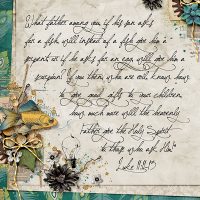 What father among you, if his son asks
for a fish, will instead of a fish give him a
serpent; or if he asks for an egg, will give him a
scorpion? If you then, who are evil, know how
to give good gifts to your children,
how much more will the heavenly
Father give the Holy Spirit
to those who ask Him!"
Luke 11:11-13